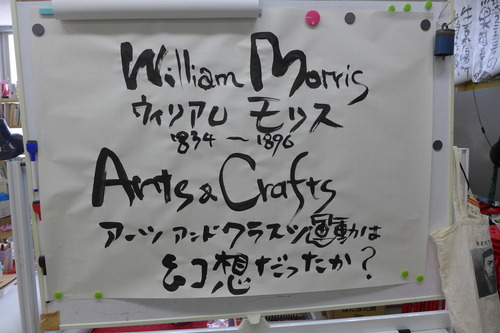 William Morris
ウィリアム モリス
1834 〜 1896
Arts & Crafts
アーツ アンド クラフツ運動は
幻想だったか?